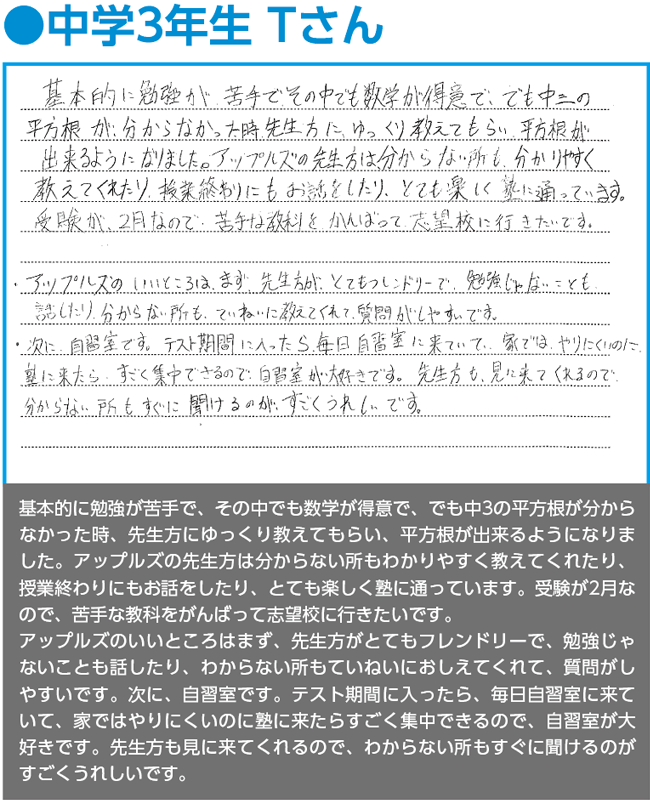 ●中学3年生 Tさん
基本的に勉強が、苦手で、その中でも数学が得意で、でも中三の
平方根が、分からなかった時、先生方に、ゆっくり教えてもらい、平方根が
出来るようになりました。アップルズの先生方は分からない所も、分かりやすく
教えてくれたり、授業終わりにもお話をしたり、とても楽しく塾に通っています。
受験が、2月なので、苦手な教科を、がんばって志望校に行きたいです。
・アップルズのいいところは、まず、先生方が、とてもフレンドリーで、勉強じゃないことも、
話したり、分からない所も、ていねいに教えてくれて、質問がしやすいです。
・次に、自習室です。テスト期間に入ったら、毎日自習室に来ていて、家では、やりにくいのに、
塾に来たら、すごく集中できるので、自習室が大好きです。先生方も、見に来てくれるので、
分からない所もすぐに聞けるのが、すごくうれしいです。
基本的に勉強が苦手で、その中でも数学が得意で、でも中3の平方根が分から
なかった時、先生方にゆっくり教えてもらい、平方根が出来るようになりま
した。アップルズの先生方は分からない所もわかりやすく教えてくれたり、
授業終わりにもお話をしたり、とても楽しく塾に通っています。受験が2月な
ので、苦手な教科をがんばって志望校に行きたいです。
アップルズのいいところはまず、先生方がとてもフレンドリーで、勉強じゃ
ないことも話したり、わからない所もていねいにおしえてくれて、質問がし
やすいです。次に、自習室です。テスト期間に入ったら、毎日自習室に来て
いて、家ではやりにくいのに塾に来たらすごく集中できるので、自習室が大
好きです。先生方も見に来てくれるので、わからない所もすぐに聞けるのが
すごくうれしいです。